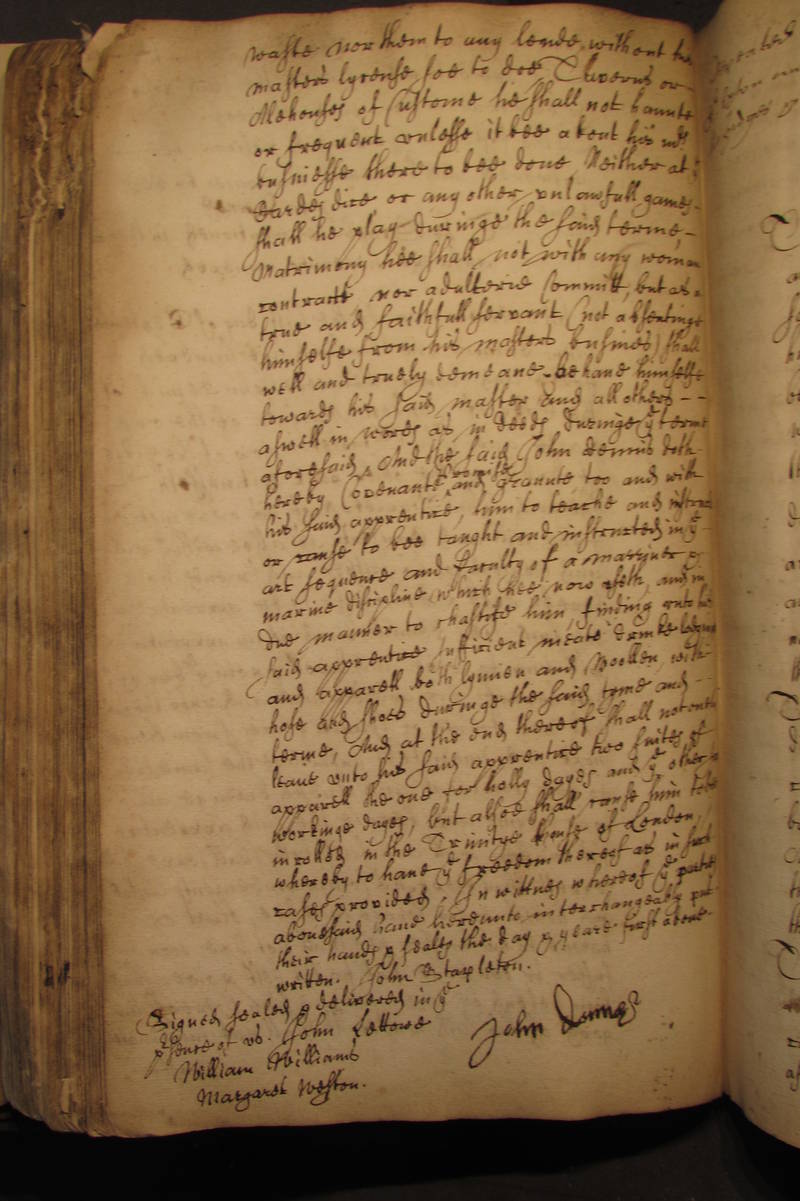 waste nor them to any lende without his
masters lycense soe to doe, Taverns or
Alehouses of Custome he shall not haunte
or frequent unlesse it bee about his mrs
businesse there to bee done Neither at
Cardes dice or any other unlawfull games
shall he play duringe the said terme,
Matrimony hee shall not with any woman
contracte nor adulterie Committ, but as a
true and faithfull servant (not absentinge
himselfe from his masters busines) shall
well and truely demeane behave himselfe
towards his said master and all others
aswell in words as in deeds duringe ye terme
aforesaid, And the said John Dennis doth
hereby Covenante promise and graunte too and with
his said apprentice, him to teache and instruct
or cause to bee taught and instructed in ye
art sequence and faculty of a marryner &
marine discipline which hee now useth, and in
due manner to chastise him, finding unto his
said apprentice sufficient meate drinke lodging
and apparell both lynnen and Woollen, with
hose and shoes duringe the said tyme and
terme, And at the end thereof shall not only
leave unto his said apprentice two suites of
apparell the one for holly dayes and ye other
workinge dayes, but alsoe shall cause him to be
inrolled in the Trinitye house of London,
whereby to have ye freedom thereof as in such
cases provided, In wittnes whereof ye parties
abovesaid have hereunto interchangeably put
their hands & seales the day & yeare first above
written. John Stapleton.
Signed sealed & delivered in ye
psence of us. John Lettowe
John Dennes
William Williams
Margaret Weston.